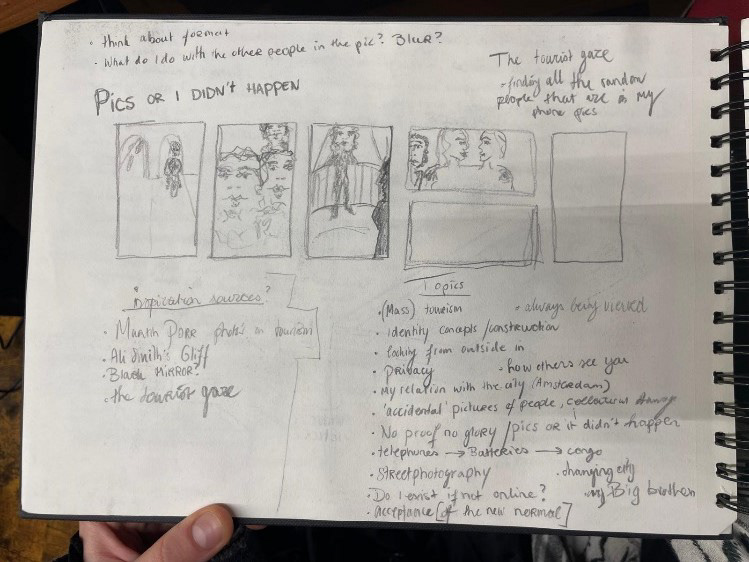 • think about format
• What do I do with the other people in the pic? Blur?
The tourist gaze
- finding all the random
people that are in my
phone pics
PICS OR I DIDN'T HAPPEN
Inspiration sources?
• Martin Parr photo's on tourism
• Ali Smith's Gliff
• BLACK MIRROR?
• the tourist gaze
Topics
• (Mass) tourism
• always being viewed
• identity concepts/construction
• looking from outside in
• privacy
• how others see you
• My relation with the city (Amsterdam)
• 'accidental' pictures of people,
• No proof no glory / pics or it didn't happen
• telephones → Batteries → congo
• Streetphotography
• changing city
• Do I exist if not online?
Big brother
• acceptance [of the new normal]